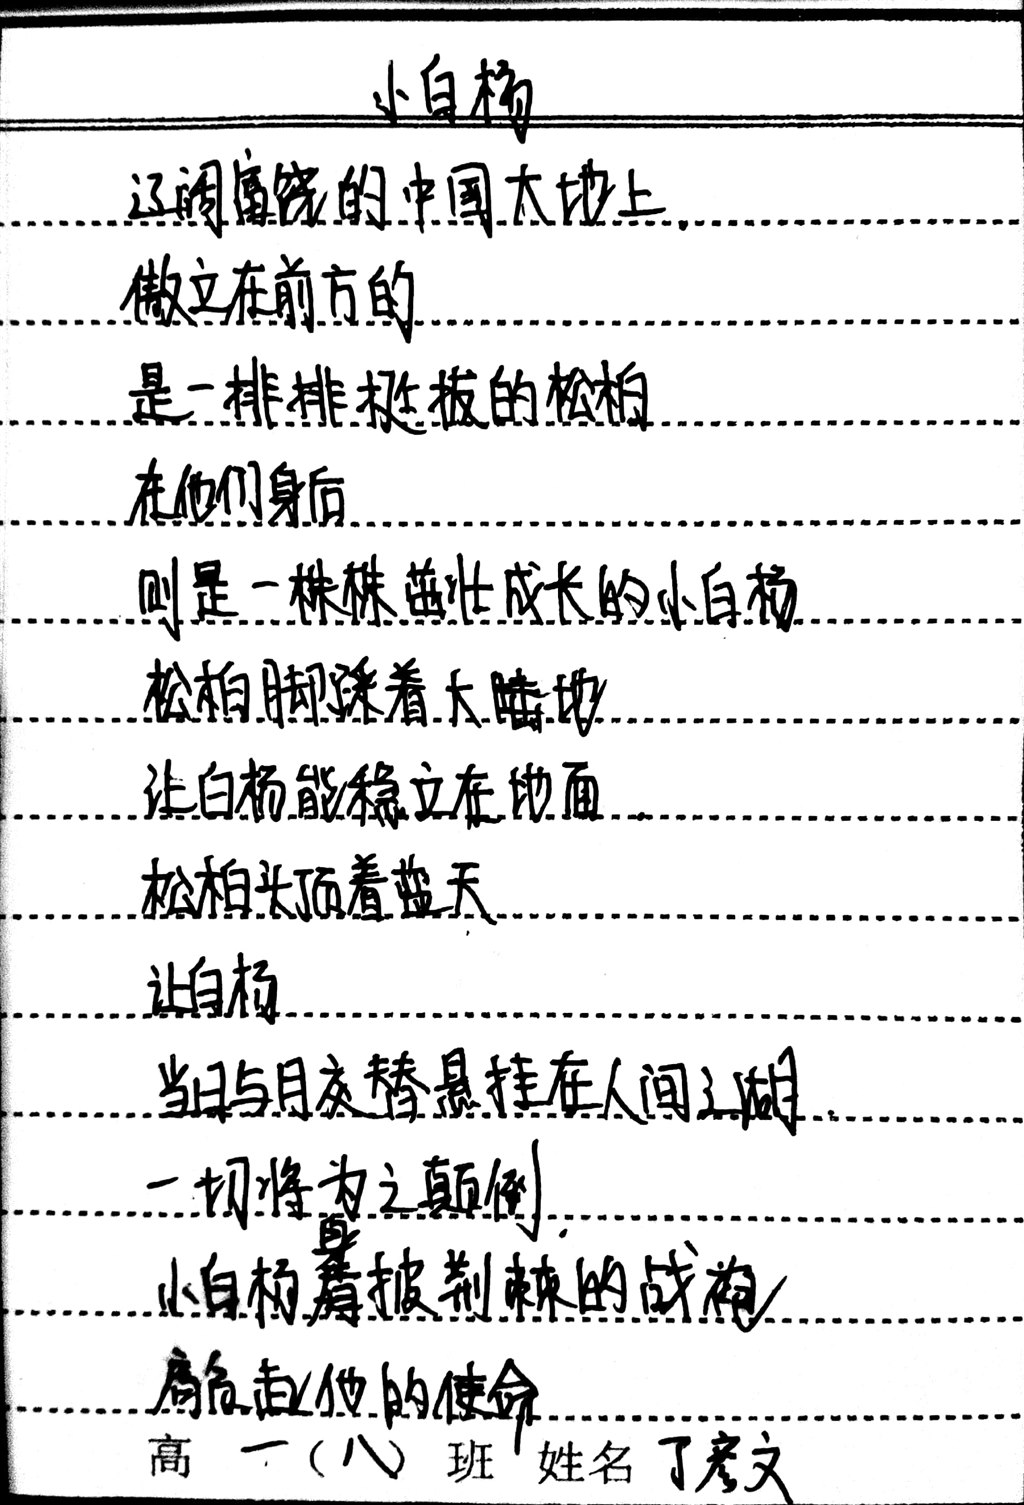 小白杨
辽阔富饶的中国大地上
傲立在前方的
是一排排挺拔的松柏
在他们身后
则是一株株茁壮成长的小白杨
松柏脚踩着大地
让白杨能稳立在地面
松柏头顶着蓝天
让白杨
当日与月交替悬挂在人间江湖
一切将为之颠倒
小白杨身披荆棘的战袍
赴他的使命
高一(八)班 姓名 丁彦文